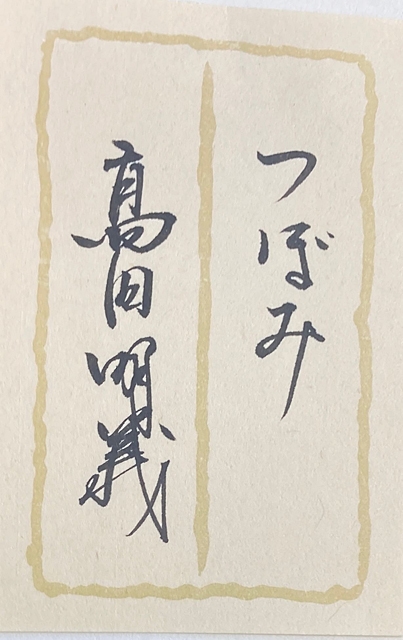 つぼみ
髙田明義